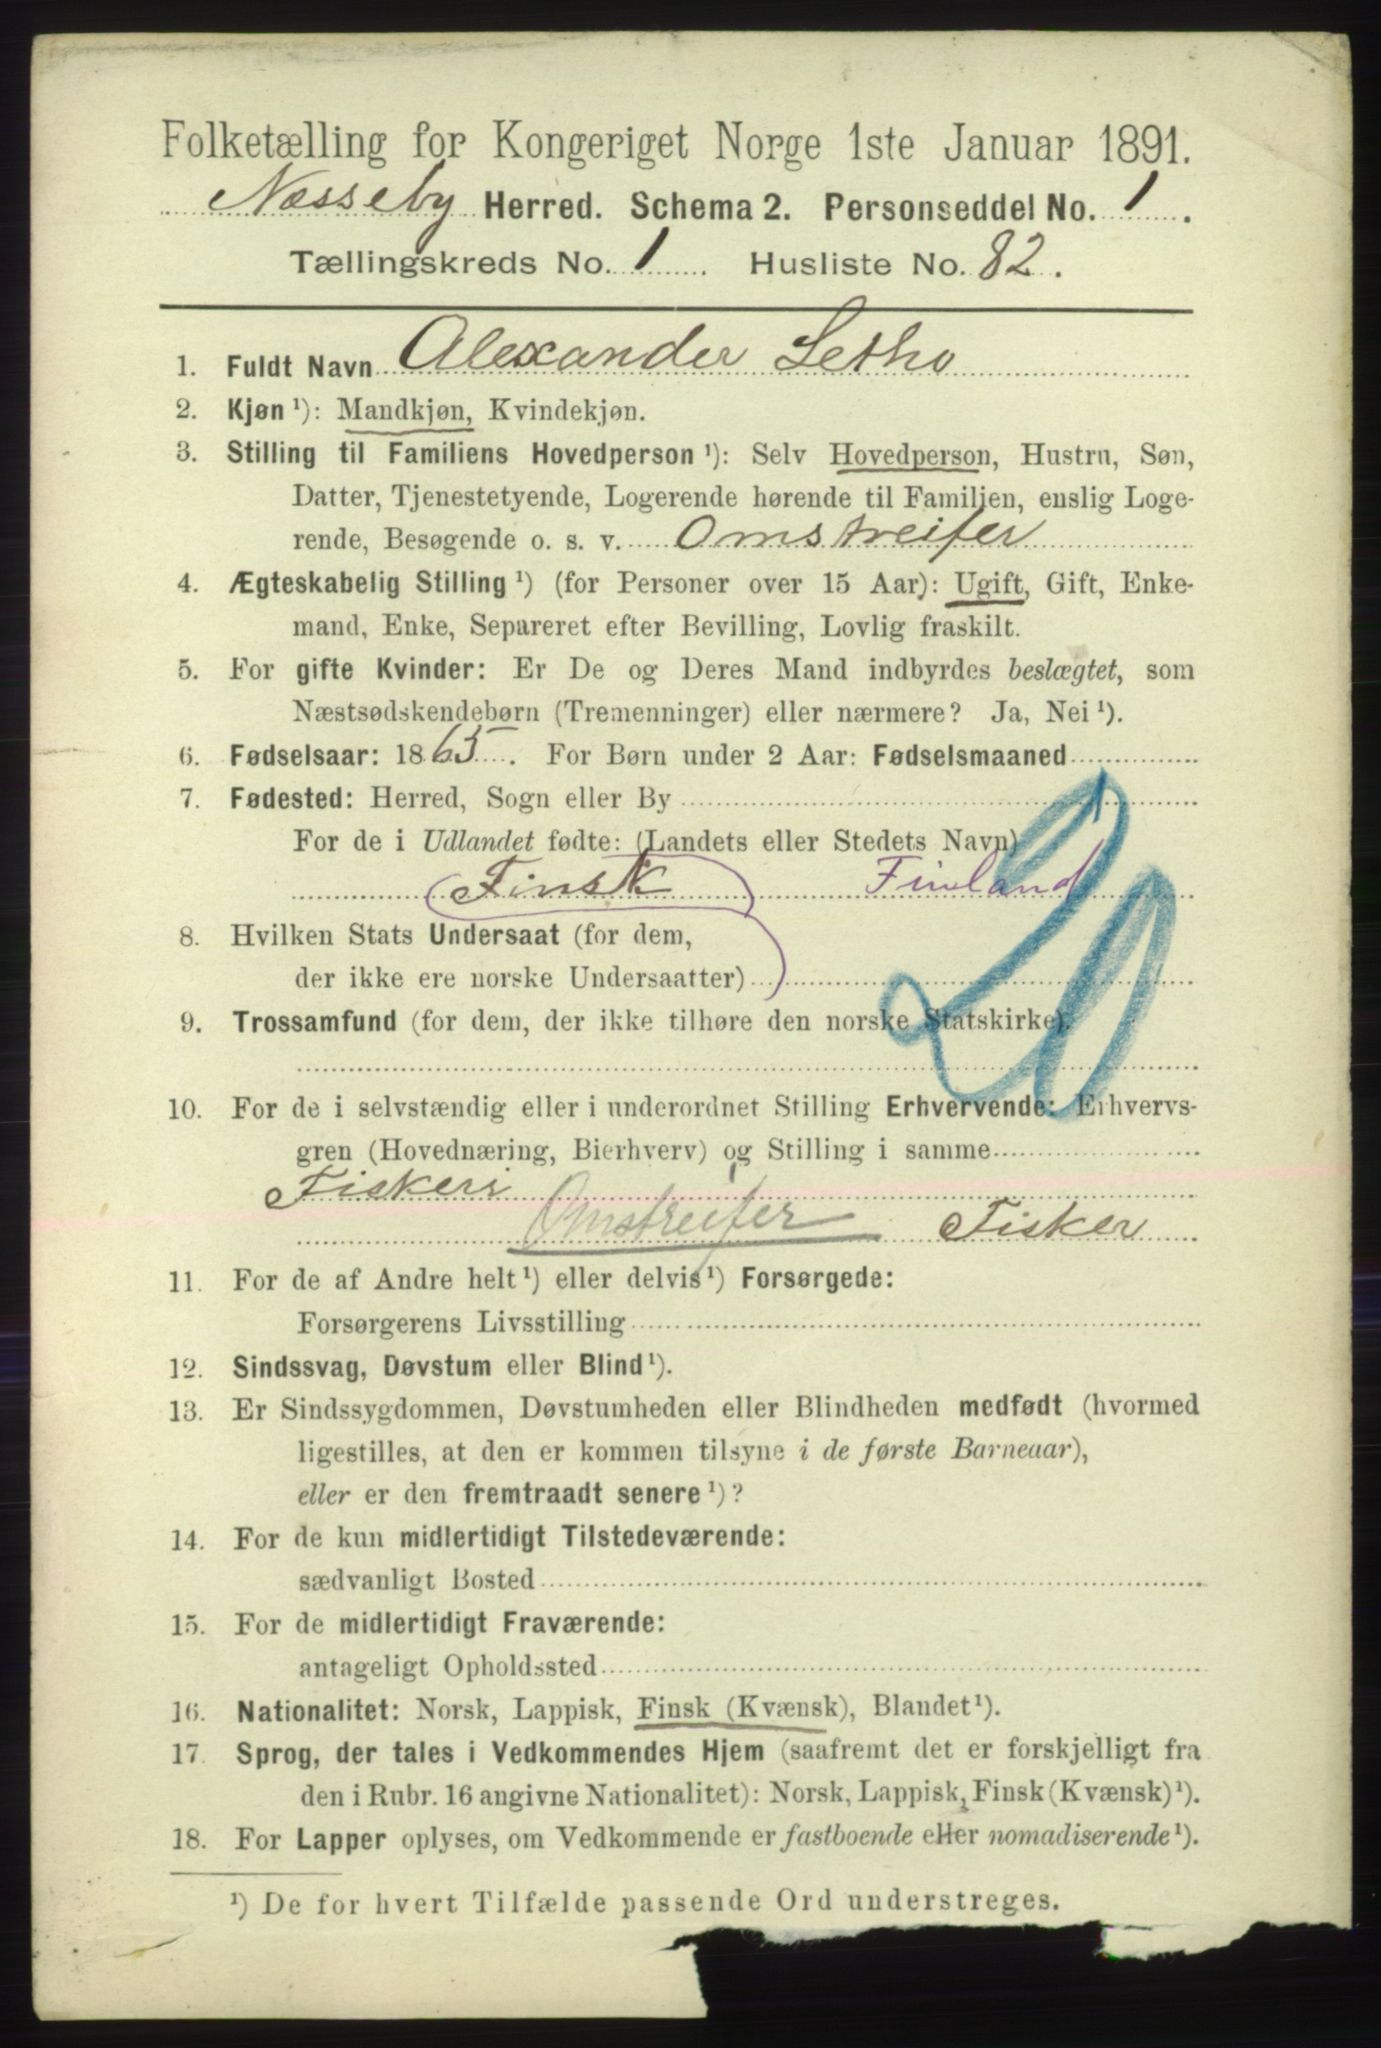 Folketælling for Kongeriget Norge 1ste Januar 1891.
Næsseby Herred. Schema 2. Personseddel No. 1.
Tællingskreds No. 1 Husliste No. 82.
1. Fuldt Navn Alexander Letho
2. Kjøn ¹): Mandkjøn, Kvindekjøn.
3. Stilling til Familiens Hovedperson ¹): Selv Hovedperson, Hustru, Søn,
Datter, Tjenestetyende, Logerende hørende til Familien, enslig Loge-
rende, Besøgende o. s. v. Omstreifer
4. Ægteskabelig Stilling ¹) (for Personer over 15 Aar): Ugift, Gift, Enke-
mand, Enke, Separeret efter Bevilling, Lovlig fraskilt.
5. For gifte Kvinder: Er De og Deres Mand indbyrdes beslægtet, som
Næstsødskendebørn (Tremenninger) eller nærmere? Ja, Nei ¹).
6. Fødselsaar: 1865. For Børn under 2 Aar: Fødselsmaaned
7. Fødested: Herred, Sogn eller By
For de i Udlandet fødte: (Landets eller Stedets Navn)
Finsk Finland
8. Hvilken Stats Undersaat (for dem,
der ikke ere norske Undersaatter)
9. Trossamfund (for dem, der ikke tilhøre den norske Statskirke).
10. For de i selvstændig eller i underordnet Stilling Erhvervende: Erhvervs-
gren (Hovednæring, Bierhverv) og Stilling i samme
Fiskeri
Omstreifer Fisker
11. For de af Andre helt ¹) eller delvis ¹) Forsørgede:
Forsørgerens Livsstilling
12. Sindssvag, Døvstum eller Blind ¹).
13. Er Sindssygdommen, Døvstumheden eller Blindheden medfødt (hvormed
ligestilles, at den er kommen tilsyne i de første Barneaar),
eller er den fremtraadt senere ¹)?
14. For de kun midlertidigt Tilstedeværende:
sædvanligt Bosted
15. For de midlertidigt Fraværende:
antageligt Opholdssted
16. Nationalitet: Norsk, Lappisk, Finsk (Kvænsk), Blandet ¹).
17. Sprog, der tales i Vedkommendes Hjem (saafremt det er forskjelligt fra
den i Rubr. 16 angivne Nationalitet): Norsk, Lappisk, Finsk (Kvænsk) ¹).
18. For Lapper oplyses, om Vedkommende er fastboende eller nomadiserende ¹).
¹) De for hvert Tilfælde passende Ord understreges.